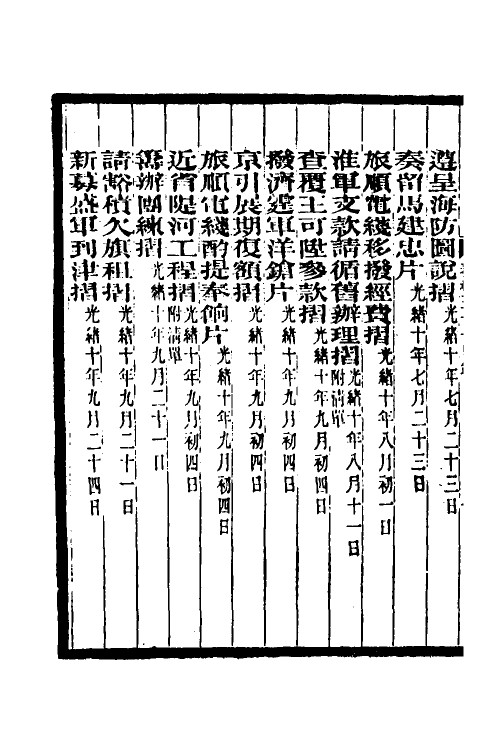 遵呈海防圖說摺光緒十年七月二十三日
奏留馬建忠片光緒十年七月二十三日
旅順電綫移撥經費摺光緒十年八月初一日
淮軍支款請循舊辦理摺附清單光緒十年八月十一日
查覆王可陞參款摺光緒十年九月初四日
撥濟邊軍洋鎗片光緒十年九月初四日
京引展期復額摺光緒十年九月初四日
旅順電綫酌提奉餉片光緒十年九月初四日
近省隄河工程摺附清單光緒十年九月初四日
籌辦團練摺光緒十年九月二十一日
請豁積欠旗租摺光緒十年九月二十一日
新募盛軍到津摺光緒十年九月二十四日